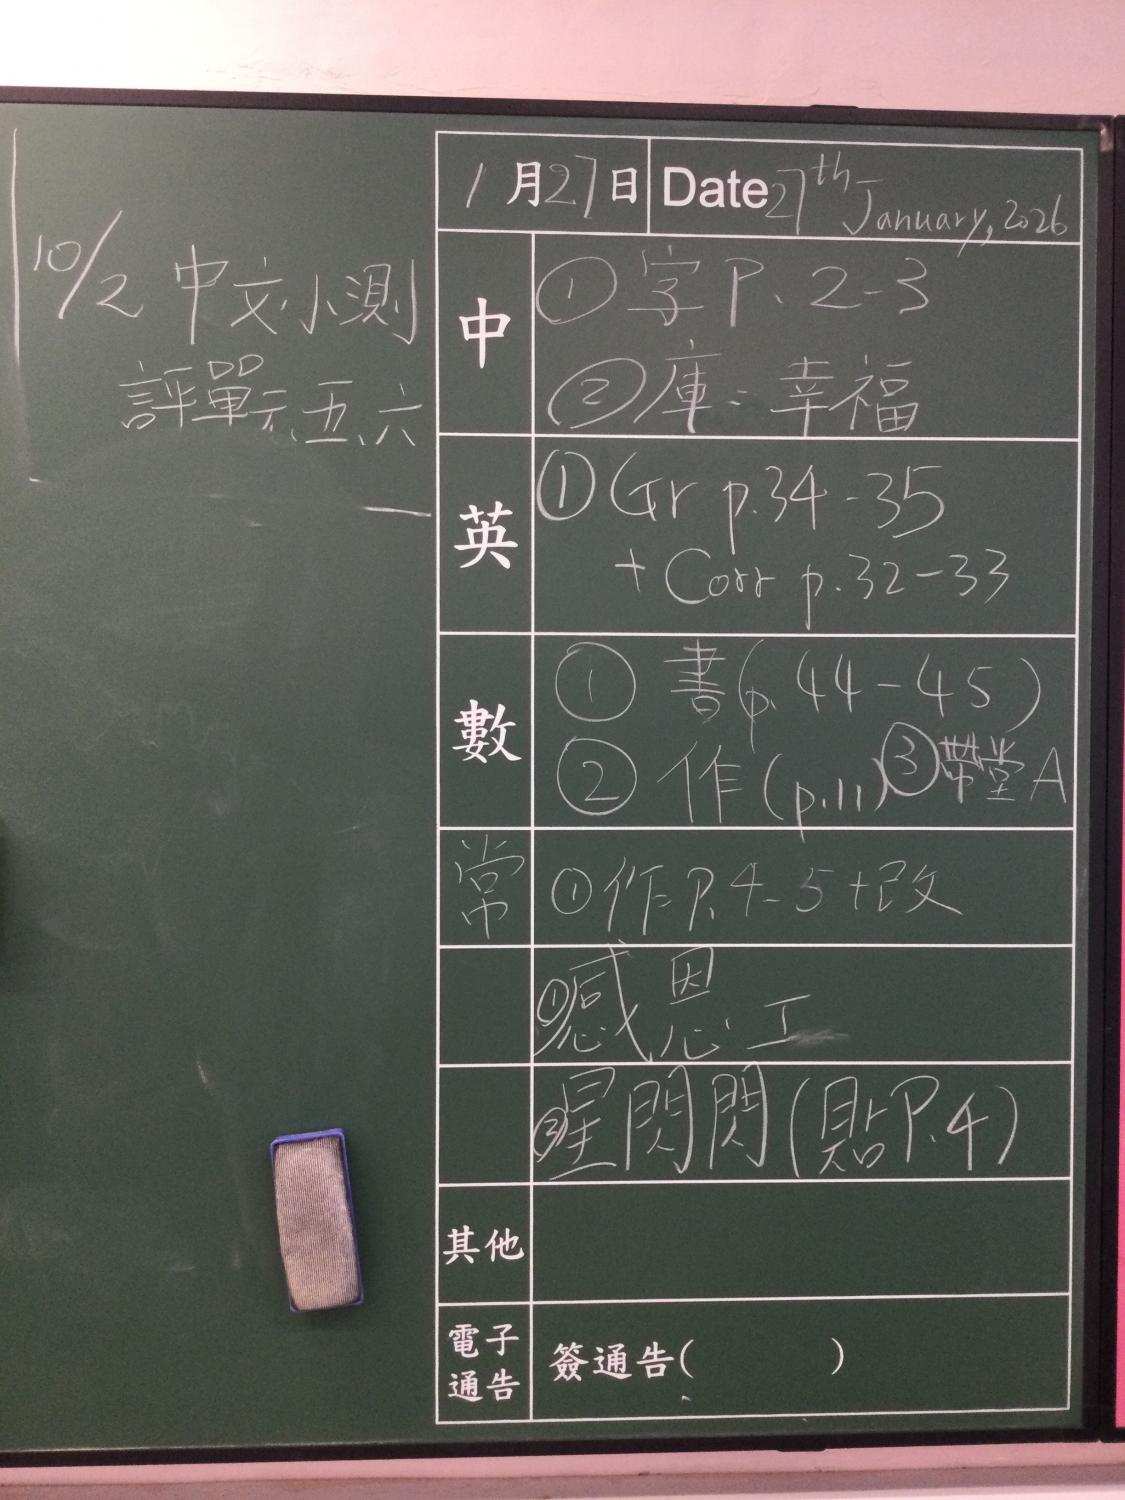 10/2 中文小測
評單元五、六
1月27日 Date 27th January, 2026
中
① 字 P. 2-3
② 庫：幸福
英
① Gr p.34-35
+ Corr p.32-33
數
① 書(p.44-45)
② 作(p.11) ③ 帶堂A
常
① 作P.4-5+改
① 感恩工
② 星閃閃(貼P.4)
其他
電子
通告
簽通告( )